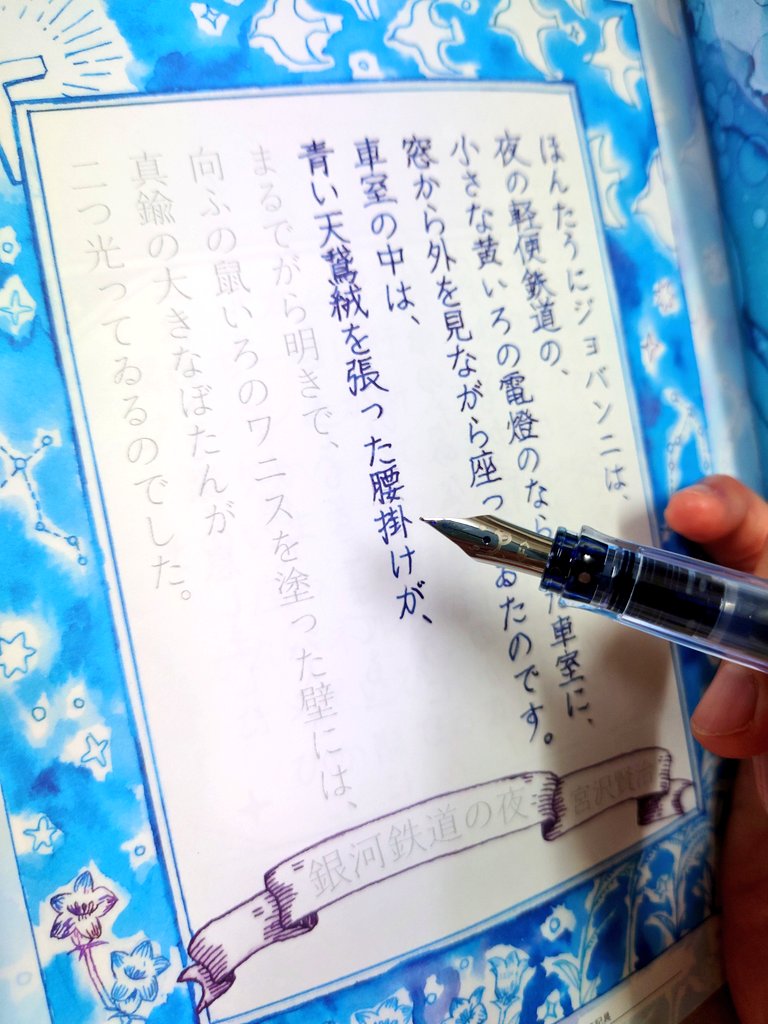 ほんたうにジョバンニは、
夜の軽便鉄道の、
小さな黄いろの電燈のならんだ車室に、
窓から外を見ながら座ってゐたのです。
車室の中は、
青い天鵞絨を張った腰掛けが、
まるでがら明きで、
向ふの鼠いろのワニスを塗った壁には、
真鍮の大きなぼたんが
二つ光ってゐるのでした。
銀河鉄道の夜 宮沢賢治